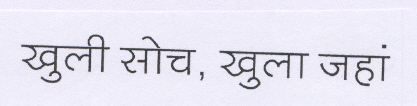 खुली सोच, खुला जहां